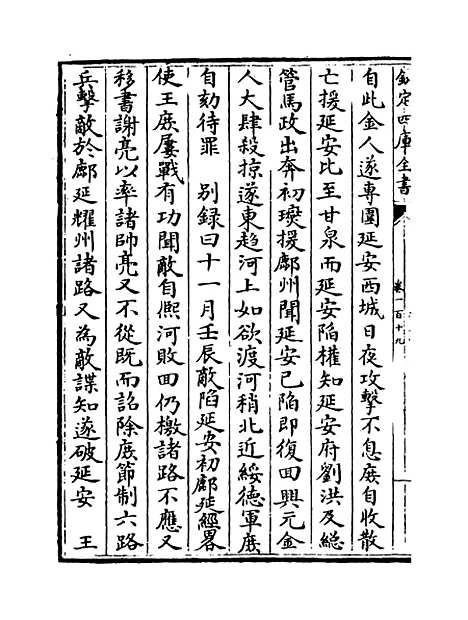 欽定四庫全書
卷一百十九
自此金人遂專圍延安西城日夜攻擊不息庶自收散
亡援延安比至甘泉而延安陷權知延安府劉洪及緫
管馬政出奔初𤫉援鄜州聞延安已陷即復回興元金
人大肆殺掠遂東趨河上如欲渡河稍北近綏德軍庶
自劾待罪　別録曰十一月壬辰敵陷延安初鄜延經畧
使王庶屢戰有功聞敵自熈河敗回仍檄諸路不應又
移書謝亮以率諸帥亮又不從既而詔除庶節制六路
兵擊敵於鄜延耀州諸路又為敵諜知遂破延安　王